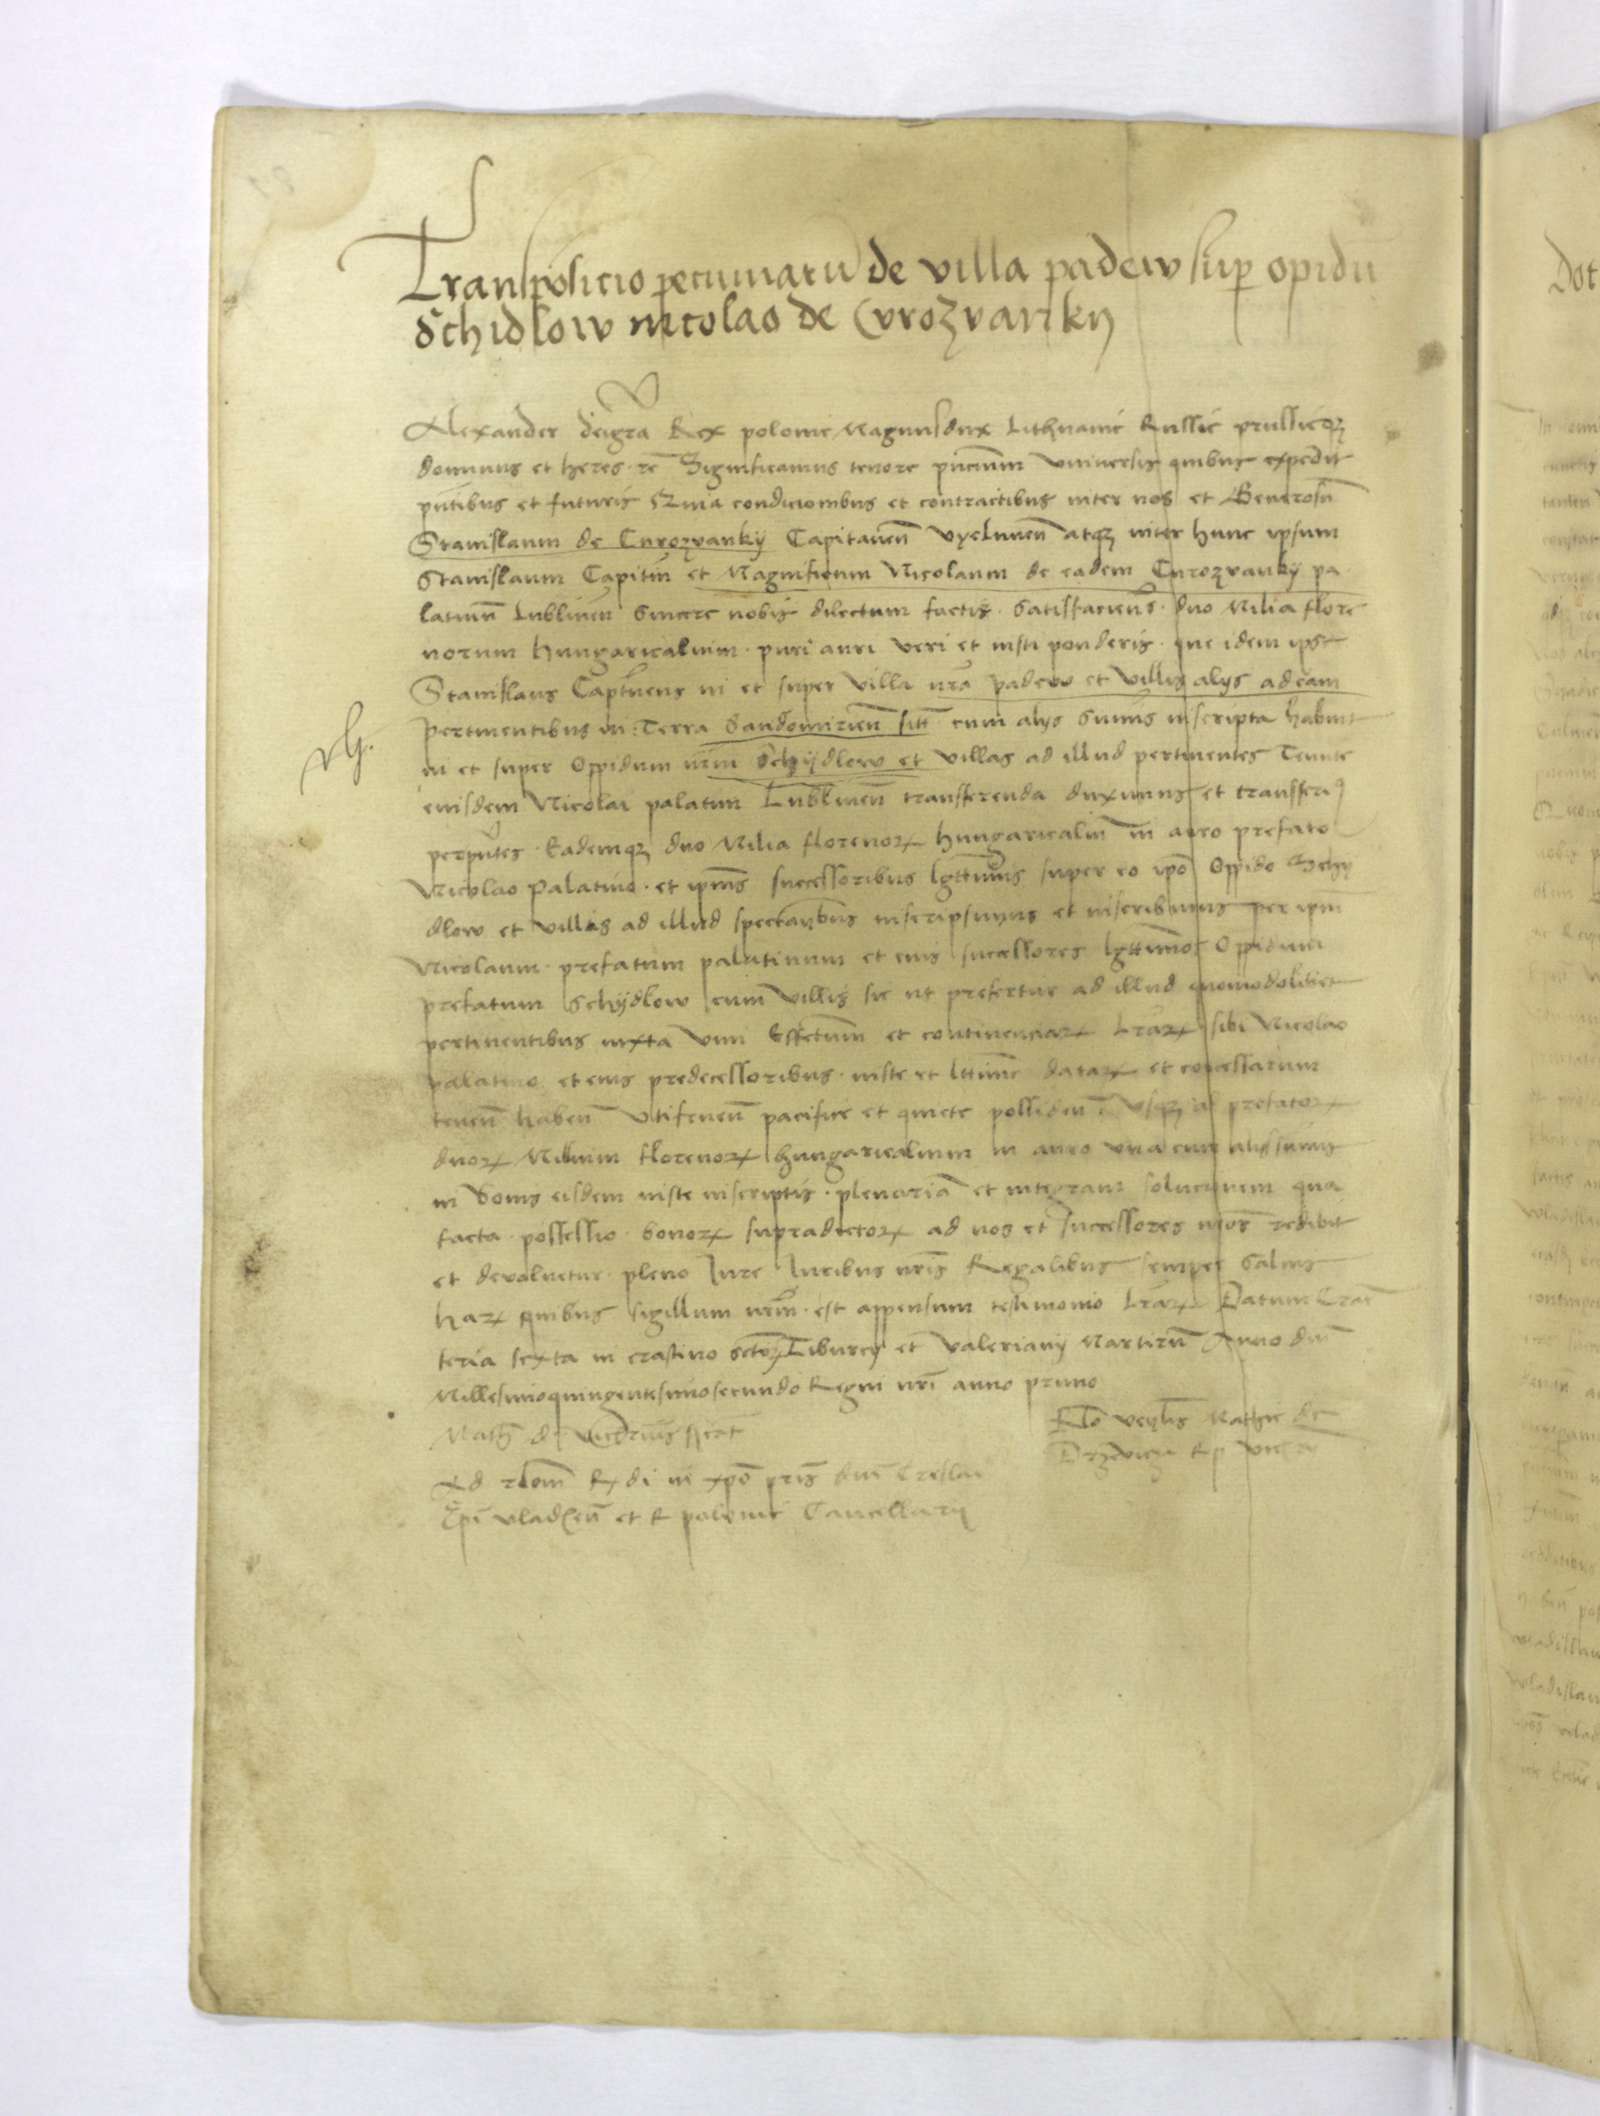 Transposicio pecuniarū de villa padew sup opidū
Schidlow nicolao de Curozvanky
Alexander deigrā Rex polonie Magnusdux Lithuanie Russie prussieqz
dominus et heres rē Significamus tenore pn̄cium Vniversis quibus expedit
pn̄tibus et futuris Quia condicionibus et contractibus inter nos et Generosū
Stanislaum de Curozvanky Capitaneū Vyelunēn atqz inter hunc ipsum
Stanislaum Capitn̄ et Magnificum Nicolaum de eadem Curozvanky pa
latinū Lublinēn Sincere nobis dilectum factis Satisfacienes duo Milia flore
norum hungaricalium puri auri veri et iusti ponderis que idem ipse
Stanislaus Captneus in et super Villa nrā padew et Villis alys adeam
pertinentibus in Terra Sandomiriēn sitt cum alys Sumis inscripta habuit
in et super Oppidum nrm Schydlow et villas ad illud pertinentes Tenute
eiusdem Nicolai palatini Lublinēn transferenda duximus et transferi9
perpn̄tes Eademqz duo Milia florenorꝝ hungaricaliū in auro prefato
Nicolao Palatino et ipius successoribus lgttimis super eo ipo Oppido Schy
dlow et villis ad illud spectan̄tibus inscripsimus et inscribimus per ipm
Nicolaum prefatum palatinum et eius successores lgttimos Oppidum
prefatum Schydlow cum villis sic ut prefertur ad illud quomodolibet
pertinentibus iuxta vim Effectum et continenciarꝝ Lrārꝝ sibi Nicolao
palatino et eius predecessoribus iuste et lttime datarꝝ et concessarum
tenen̄ haben̄ Vtifruen̄ pacifice et quiete possiden̄ Vsqz ad prefatorꝝ
duorꝝ Milium florenorꝝ hungaricalium in auro vna cum alys sumis
in bonis eisdem iuste inscriptis plenariā et integram solucionem qua
facta possessio bonorꝝ supradictorꝝ ad nos et successores nros redibit
et devoluetur pleno Iure Iuribus nris Regalibus semper Salvis
harꝝ quibus sigillum nrm est appensum testimonio Lrārꝝ Datum Crac
feria sexta in crastino sctorꝝ Tiburcy et Valeriany Martirū Anno dni
Millesimoquingentesimosecundo Regni nri anno primo
Rlo veylis Mathie de
Drzevicza R p vic
Ad rlom R di in xpo pris dni Creslai
Epi vladēn et R polonie Cancellarij